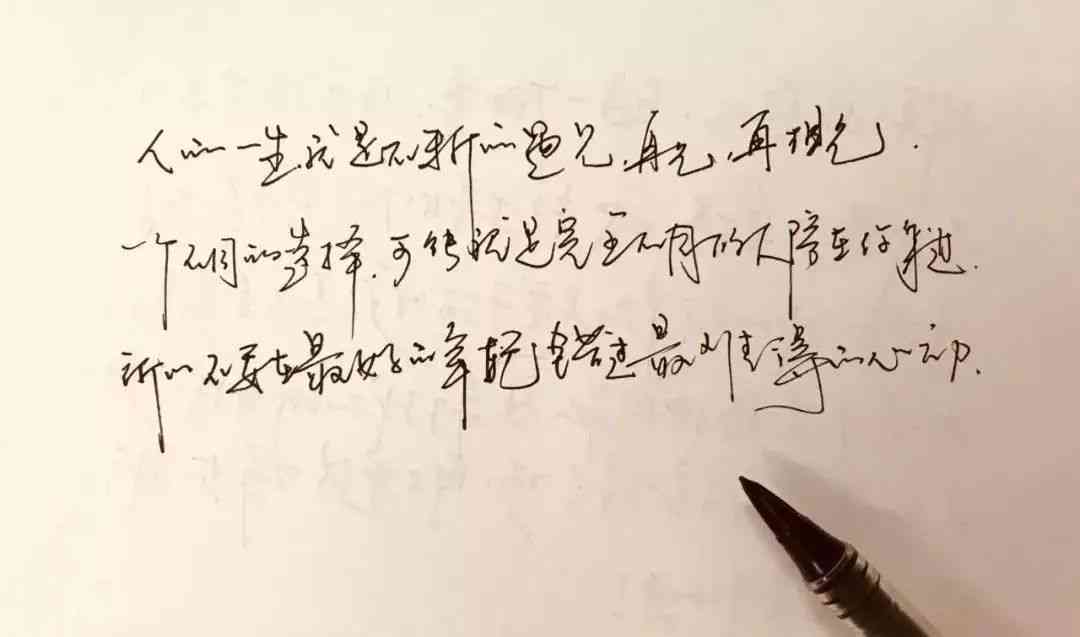 人的一生就是不断的遇见,再见,再相见.
一个不同的选择,可能就是完全不同的人陪在你身边.
所以不要在最好的年纪错过最难得的心动.